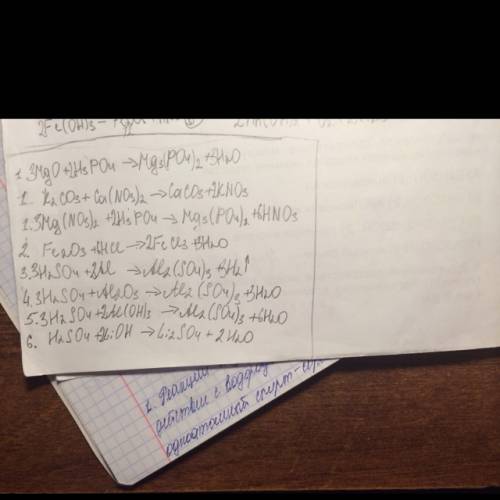 2Fe(OH)3 –
1 3MgO + 2H3PO4 → Mg3(PO4)2 + 3H2O
1. K2CO3 + Ca(NO3)2 → CaCO3 + 2KNO3
1. 3Mg(NO3)2 + 2H3PO4 → Mg3(PO4)2 + 6HNO3
2 Fe2O3 + 6HCl → 2FeCl3 + 3H2O
3. 3H2SO4 + 2Al → Al2(SO4)3 + 3H2↑
4. 3H2SO4 + Al2O3 → Al2(SO4)3 + 3H2O
5. 3H2SO4 + 2Al(OH)3 → Al2(SO4)3 + 6H2O
6. H2SO4 + 2LiOH → Li2SO4 + 2H2O
2. Реакции
действии с водород
одноатомный спирт –